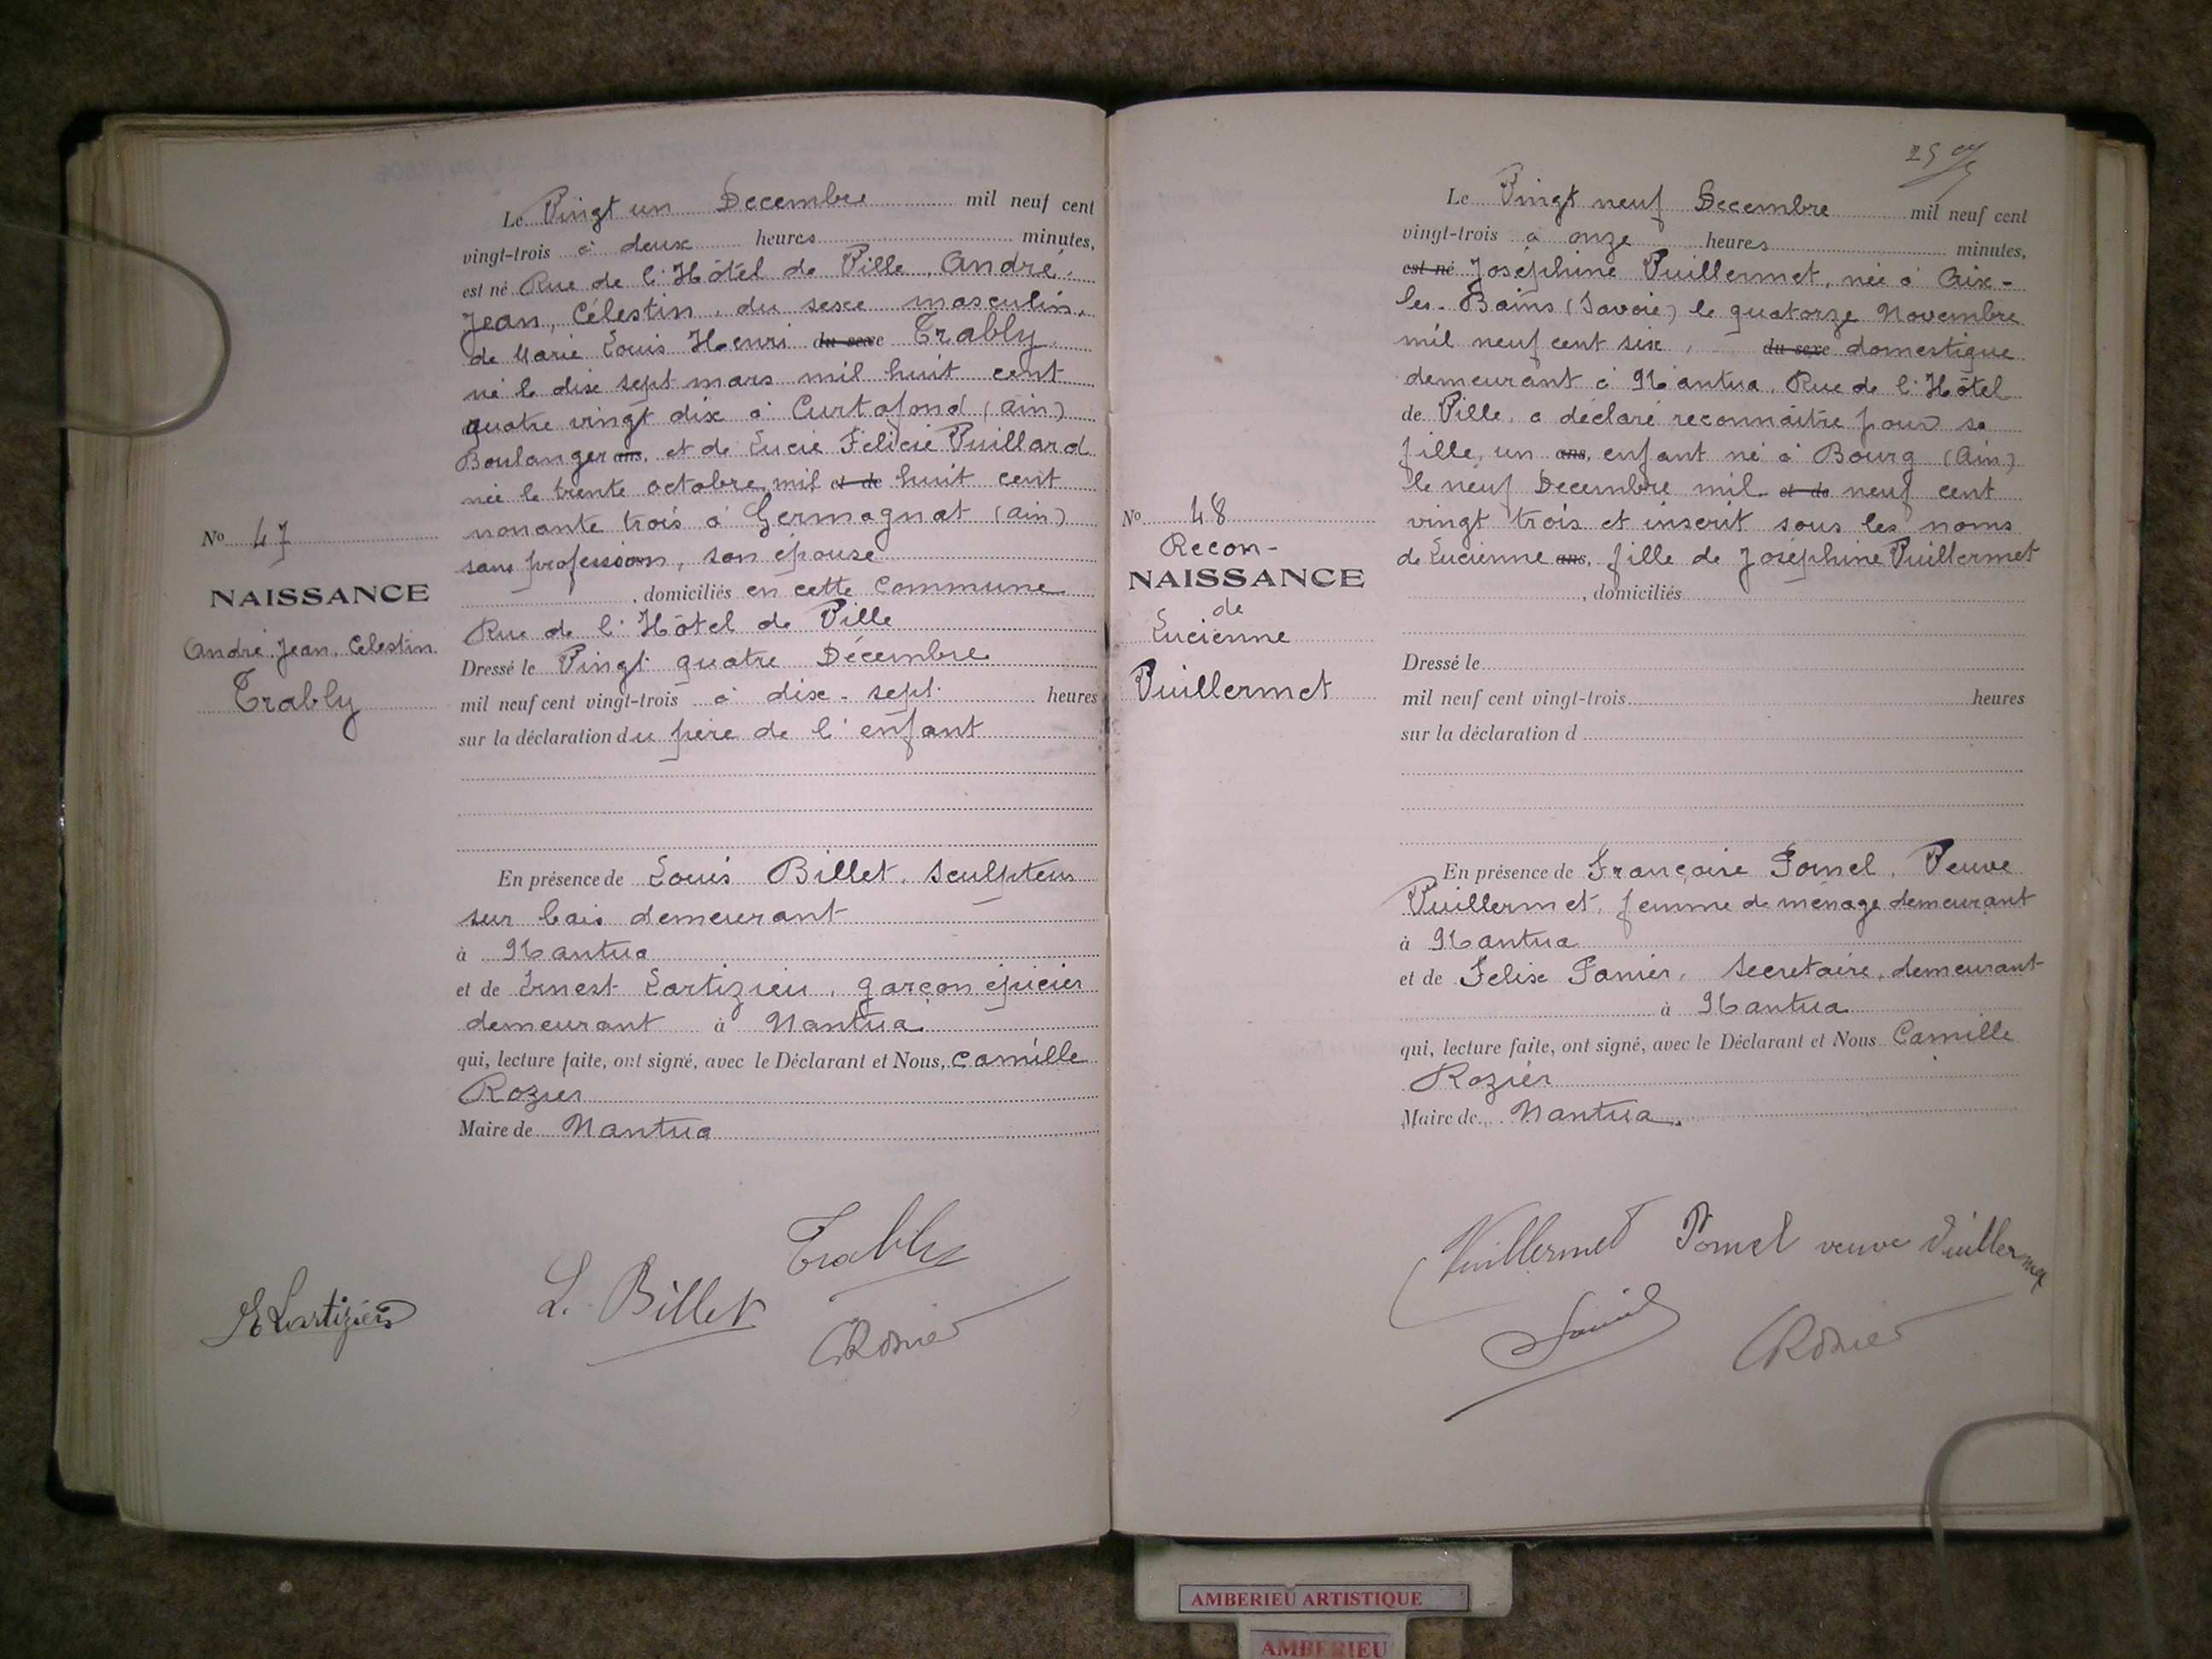 Le Vingt un Decembre mil neuf cent
vingt-trois à deux heures minutes,
est né Rue de l'Hôtel de Ville, André,
Jean, Célestin, du sexe masculin,
de Marie Louis Henri du sexe Trably
né le dix sept mars mil huit cent
quatre vingt dix à Curtafond (Ain)
Boulanger ans, et de Lucie Félicie Vuillard
née le trente octobre mil et de huit cent
nonante trois à Germagnat (Ain)
sans profession, son épouse
, domiciliés en cette commune
Rue de l'Hôtel de Ville
Dressé le Vingt quatre Décembre
mil neuf cent vingt-trois à dix-sept heures
sur la déclaration du père de l'enfant
En présence de Louis Billet, Sculpteur
sur bois demeurant
à Nantua
et de Ernest Lartizien, garçon épicier
demeurant à Nantua
qui, lecture faite, ont signé, avec le Déclarant et Nous, Camille
Rozier
Maire de Nantua
No 47
NAISSANCE
André, Jean, Celestin
Trably
Trably
L. Billet
E Lartizien
CRozier
25
Le Vingt neuf Decembre mil neuf cent
vingt-trois à onze heures minutes,
est né Joséphine Vuillermet, née à Aix-
les-Bains (Savoie) le quatorze Novembre
mil neuf cent six, du sexe domestique
demeurant à Nantua, Rue de l'Hôtel
de Ville, a déclaré reconnaître pour sa
fille, un ans, enfant né à Bourg (Ain)
le neuf Decembre mil et de neuf cent
vingt trois et inscrit sous les noms
de Lucienne ans, fille de Joséphine Vuillermet
, domiciliés
Dressé le
mil neuf cent vingt-trois heures
sur la déclaration d
En présence de Françoise Pomel, Veuve
Vuillermet, femme de ménage demeurant
à Nantua
et de Felix Panier, Secretaire, demeurant
à Nantua
qui, lecture faite, ont signé, avec le Déclarant et Nous Camille
Rozier
Maire de Nantua
No 48
Recon-
NAISSANCE
de
Lucienne
Vuillermet
Vuillermet Pomel veuve Vuillermet
CRozier
AMBERIEU ARTISTIQUE
AMBERIEU